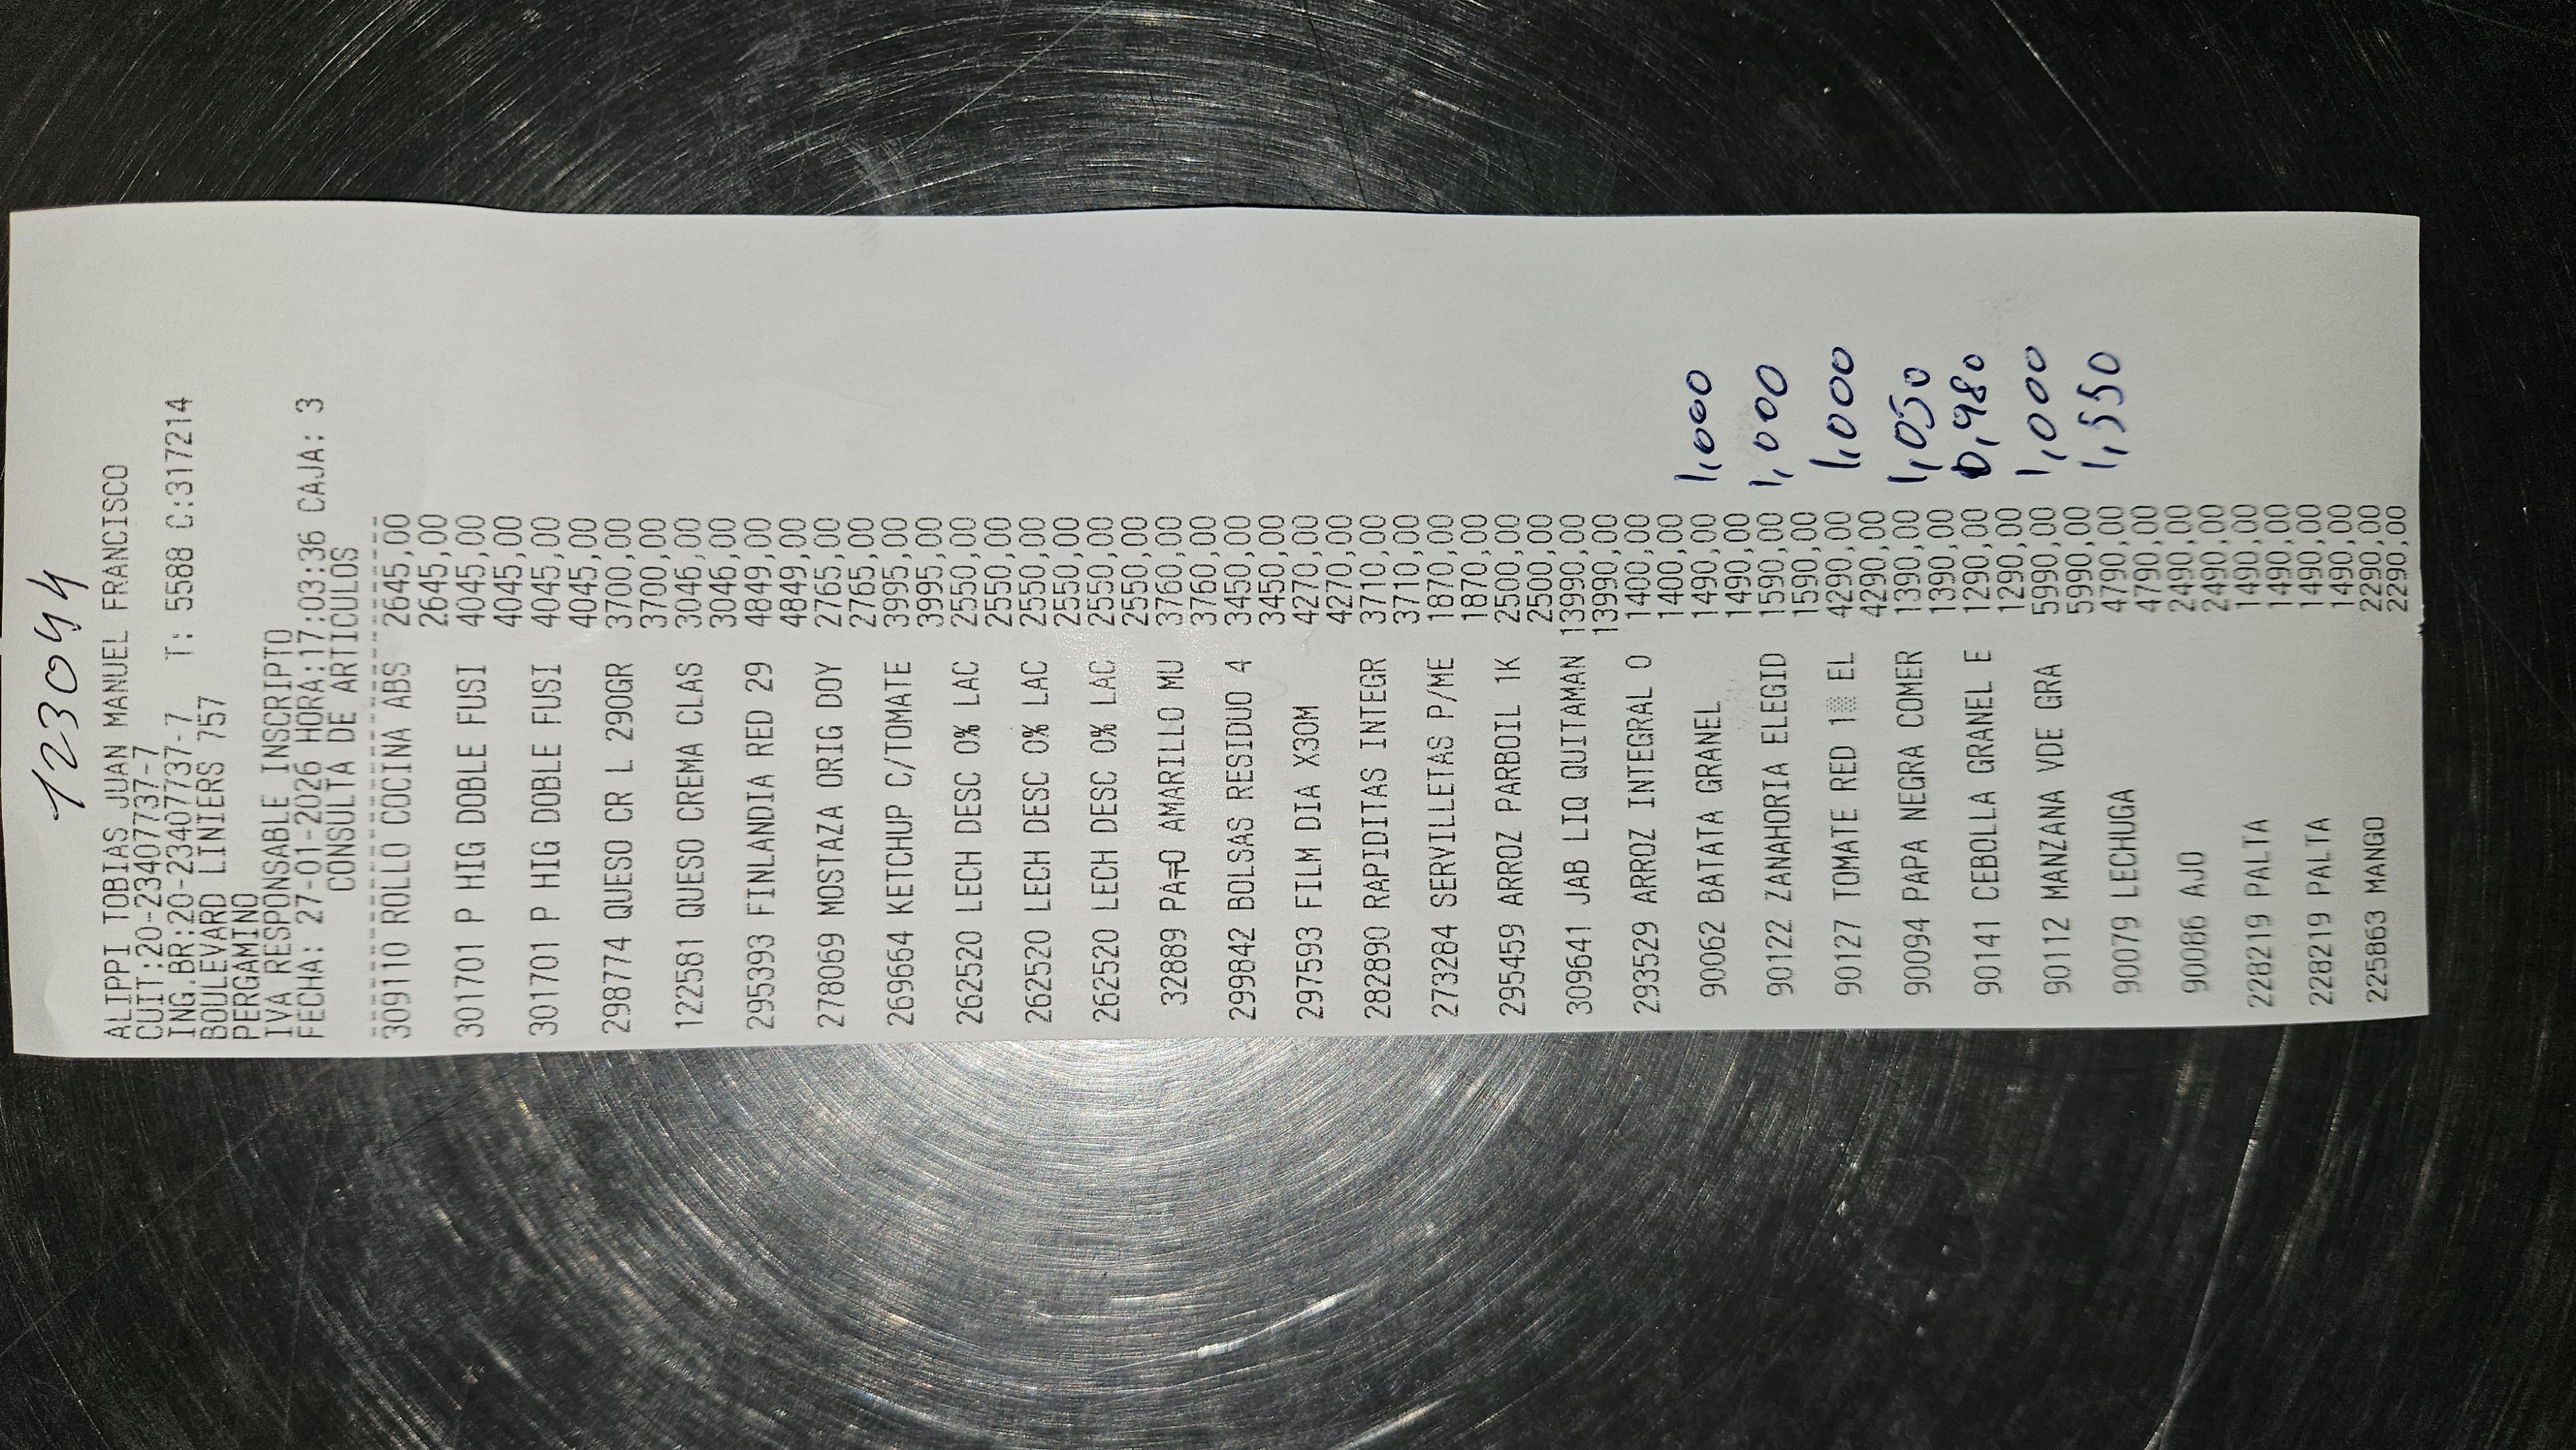 123044
ALIPPI TOBIAS JUAN MANUEL FRANCISCO
CUIT:20-23407737-7
ING.BR:20-23407737-7 T: 5588 C:317214
BOULEVARD LINIERS 757
PERGAMINO
IVA RESPONSABLE INSCRIPTO
FECHA: 27-01-2026 HORA:17:03:36 CAJA: 3
CONSULTA DE ARTICULOS
309110 ROLLO COCINA ABS 2645,00
2645,00
301701 P HIG DOBLE FUSI 4045,00
4045,00
301701 P HIG DOBLE FUSI 4045,00
4045,00
298774 QUESO CR L 290GR 3700,00
3700,00
122581 QUESO CREMA CLAS 3046,00
3046,00
295393 FINLANDIA RED 29 4849,00
4849,00
278069 MOSTAZA ORIG DOY 2765,00
2765,00
269664 KETCHUP C/TOMATE 3995,00
3995,00
262520 LECH DESC 0% LAC 2550,00
2550,00
262520 LECH DESC 0% LAC 2550,00
2550,00
262520 LECH DESC 0% LAC 2550,00
2550,00
32889 PA╤O AMARILLO MU 3760,00
3760,00
299842 BOLSAS RESIDUO 4 3450,00
3450,00
297593 FILM DIA X30M 4270,00
4270,00
282890 RAPIDITAS INTEGR 3710,00
3710,00
273284 SERVILLETAS P/ME 1870,00
1870,00
295459 ARROZ PARBOIL 1K 2500,00
2500,00
309641 JAB LIQ QUITAMAN 13990,00
13990,00
293529 ARROZ INTEGRAL O 1400,00
1400,00
90062 BATATA GRANEL 1490,00 1,000
1490,00
90122 ZANAHORIA ELEGID 1590,00 1,000
1590,00
90127 TOMATE RED 1▒ EL 4290,00 1,000
4290,00
90094 PAPA NEGRA COMER 1390,00 1,050
1390,00
90141 CEBOLLA GRANEL E 1290,00 0,980
1290,00
90112 MANZANA VDE GRA 5990,00 1,000
5990,00
90079 LECHUGA 4790,00 1,550
4790,00
90086 AJO 2490,00
2490,00
228219 PALTA 1490,00
1490,00
228219 PALTA 1490,00
1490,00
225863 MANGO 2290,00
2290,00